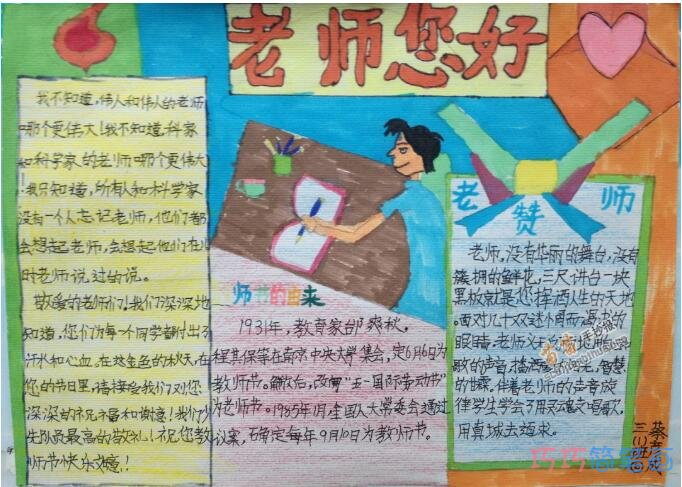 老师您好
我不知道,伟人和伟人的老师
哪个更伟大!我不知道,科家
和科学家的老师哪个更伟大
我只知道,所有人和科学家
没有一个人忘记老师,他们都
会想起老师,会想起他们在儿
时老师说过的说。
敬爱的老师们!我们深深地
知道,您们为每一个同学都付出了
汗水和心血。在这金色的秋天,在
您的节日里,请接受我们对您
深深的祝福和谢意!我们少
先队员最高的敬礼!祝您教
师节快乐
师节的由来
1931年,教育家邰爽秋,
程其保等在南京中央大学集会,定6月6日为
教师节。解放后,改用"五一国际劳动节"
为老师节。1985年1月全国人大常委会通过
议案,确定每年9月10日为教师节。
老赞师
老师,没有华丽的舞台,没有
簇拥的鲜花,三尺讲台一块
黑板就是您挥洒人生的天地
面对几十双迷惘而
的眼睛,老师
的声音,智慧
的世界,伴着老师的声音旋
律学生学会了用灵魂唱歌,
用真诚去追求。
三(1)班
蔡